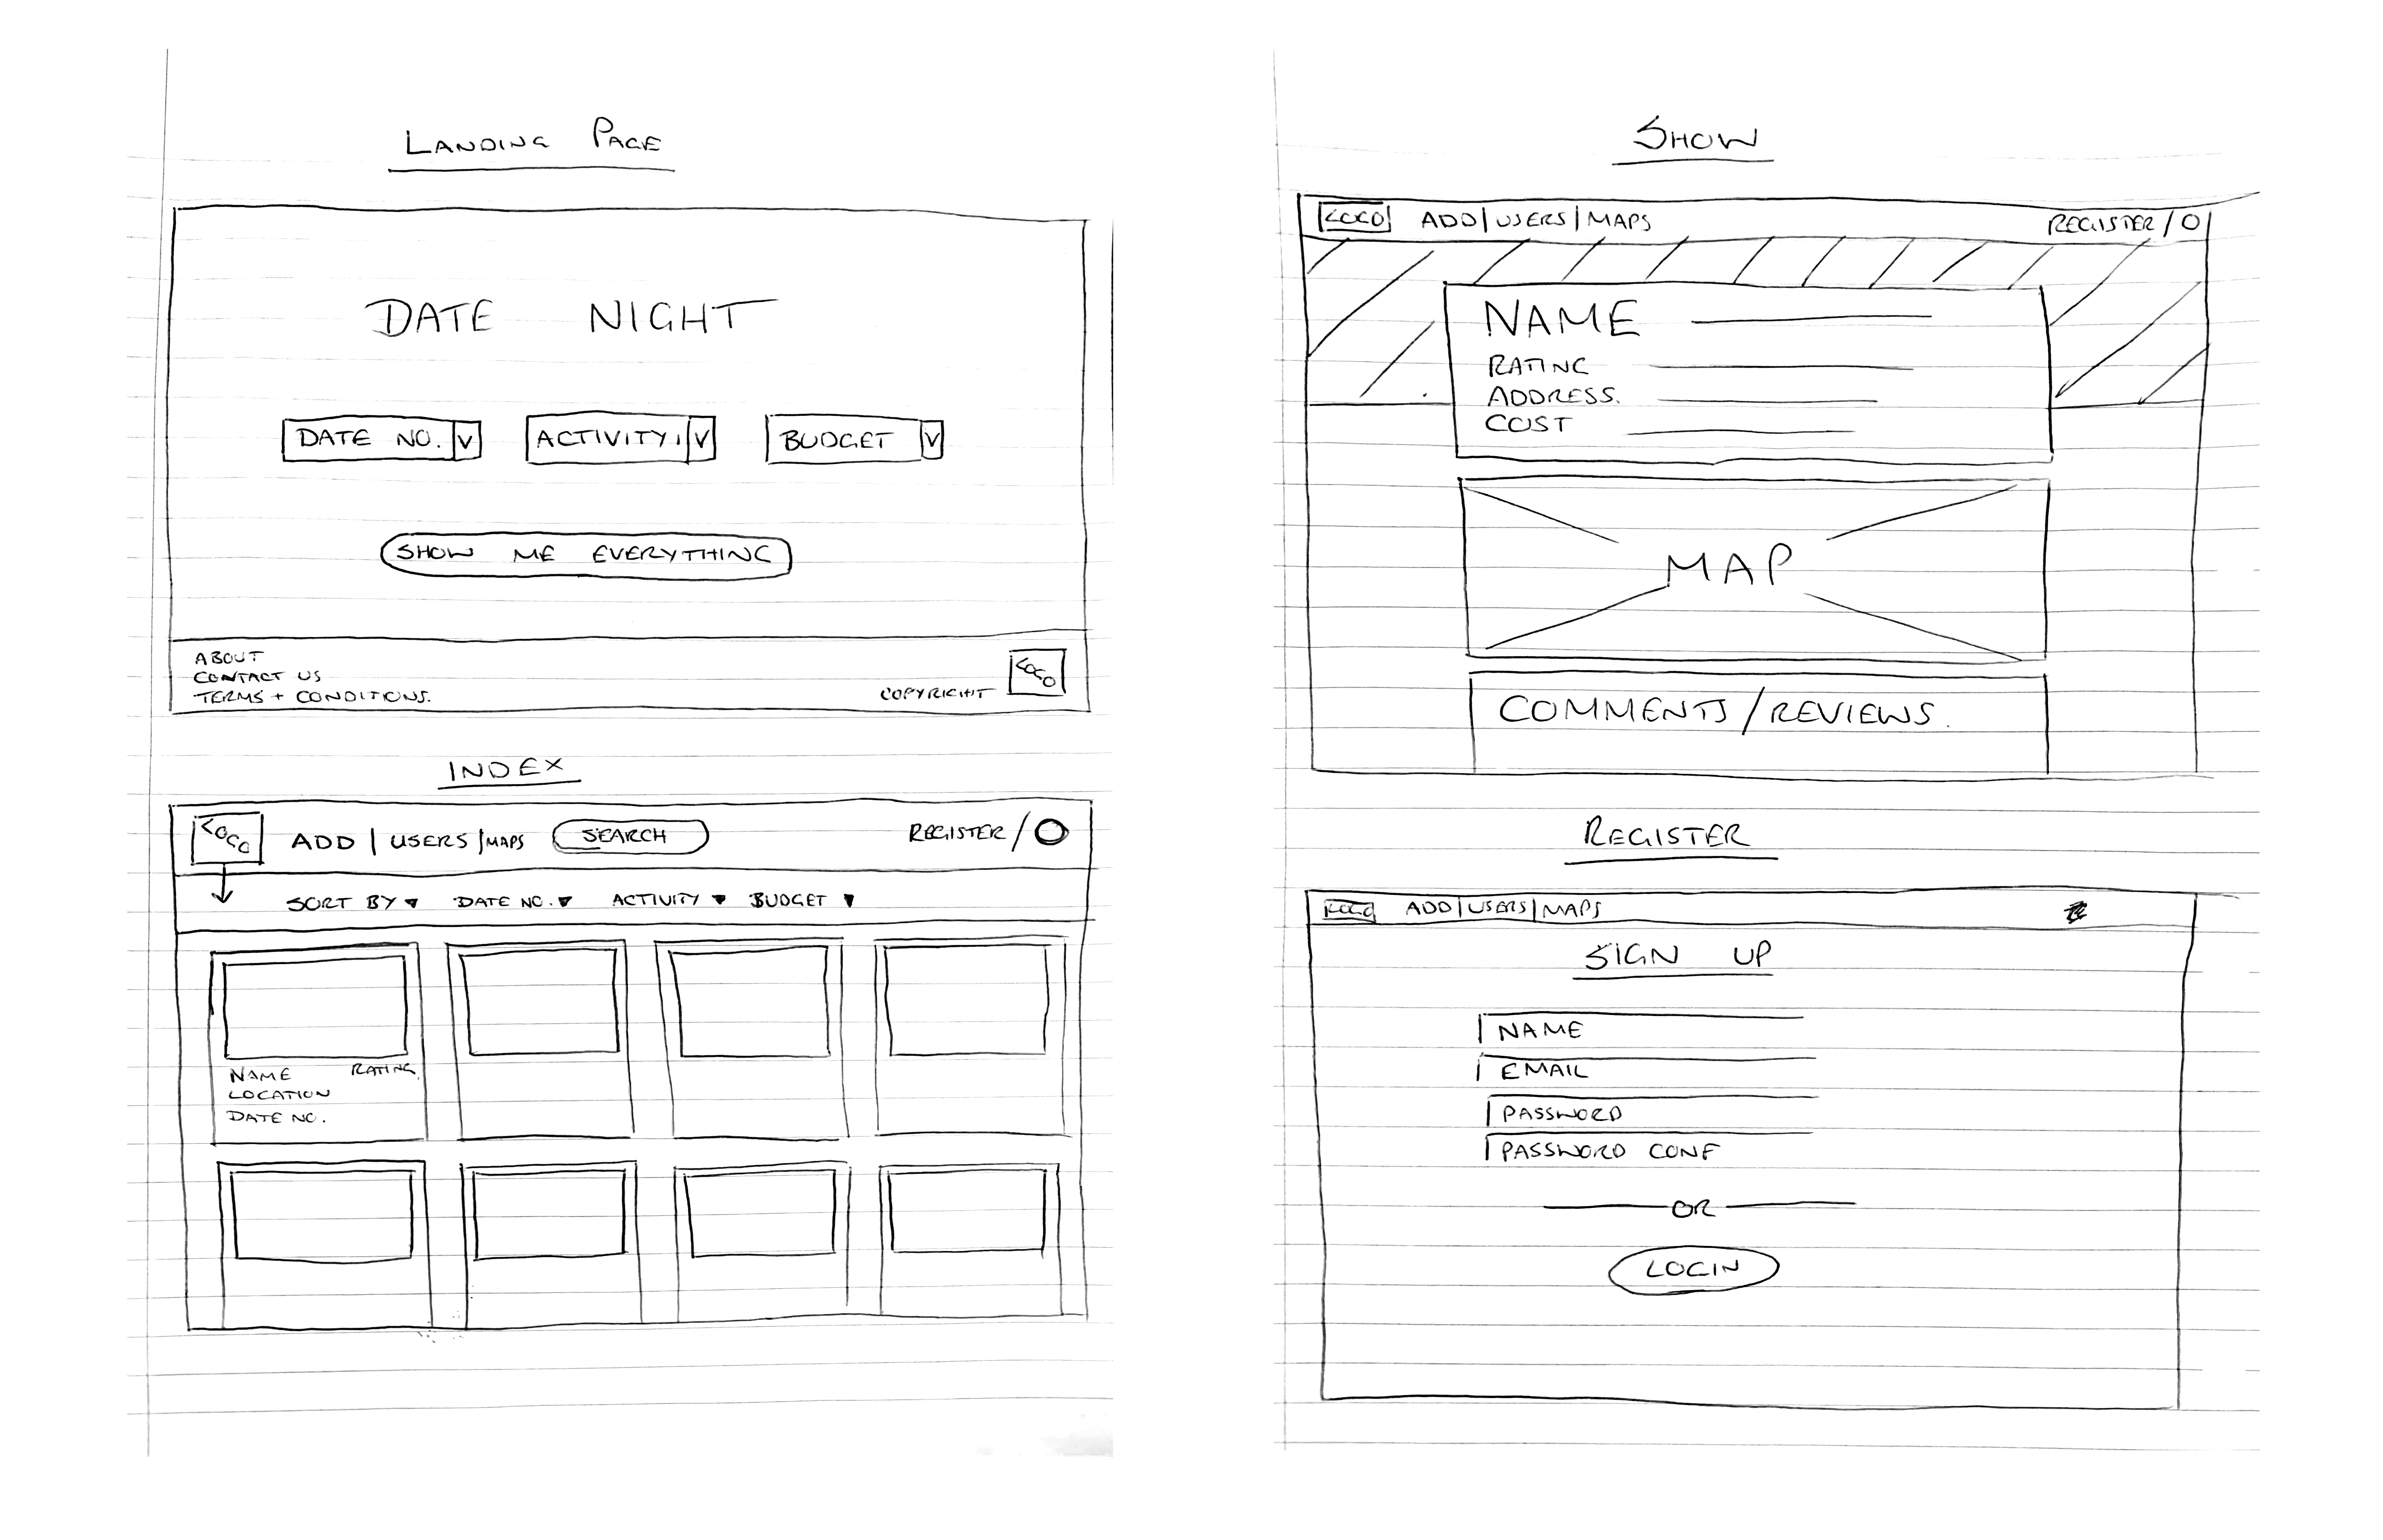 LANDING PAGE
DATE NIGHT
DATE NO. V ACTIVITY. V BUDGET V
SHOW ME EVERYTHING
ABOUT
CONTACT US
TERMS + CONDITIONS.
COPYRIGHT LOGO
INDEX
LOGO ADD | USERS | MAPS SEARCH REGISTER /
SORT BY DATE NO. ACTIVITY BUDGET
NAME RATING
LOCATION
DATE NO.
SHOW
LOGO ADD | USERS | MAPS REGISTER /
NAME
RATING
ADDRESS.
COST
MAP
COMMENTS / REVIEWS.
REGISTER
LOGO ADD | USERS | MAPS
SIGN UP
NAME
EMAIL
PASSWORD
PASSWORD CONF
OR
LOGIN